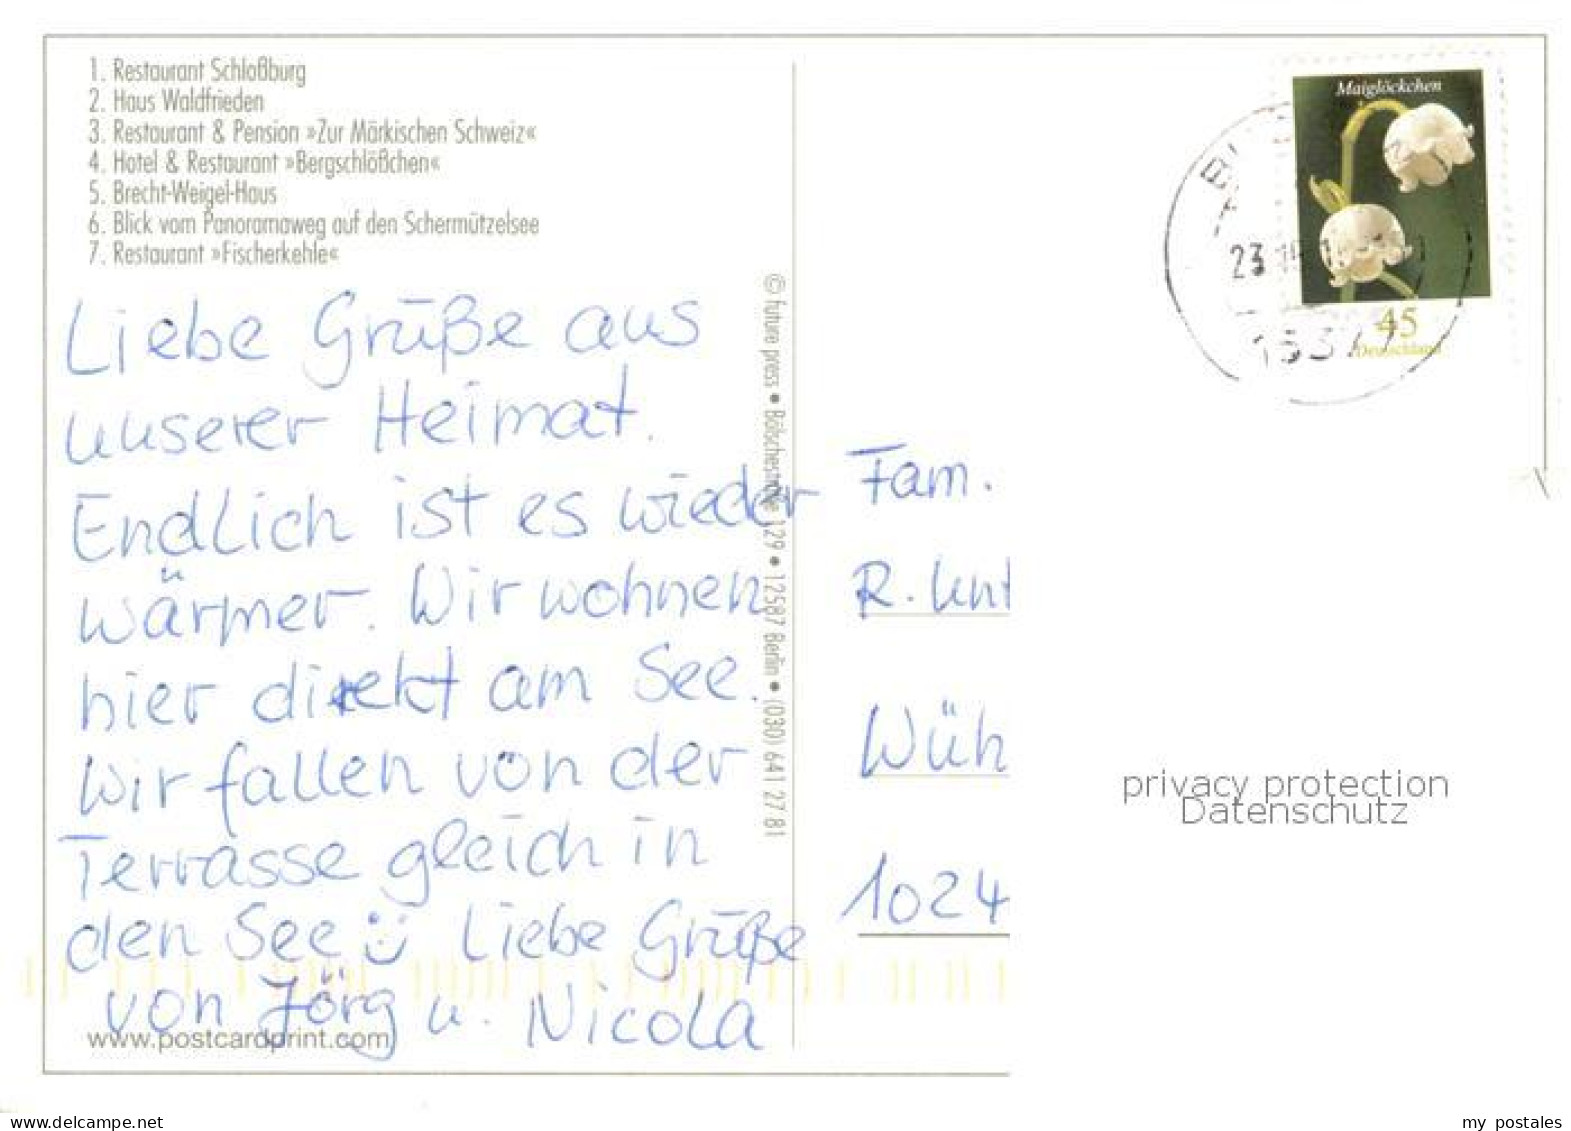 1. Restaurant Schloßburg
2. Haus Waldfrieden
3. Restaurant & Pension »Zur Märkischen Schweiz«
4. Hotel & Restaurant »Bergschlößchen«
5. Brecht-Weigel-Haus
6. Blick vom Panoramaweg auf den Schermützelsee
7. Restaurant »Fischerkehle«
Liebe Grüße aus
unserer Heimat.
Endlich ist es wieder
wärmer. Wir wohnen
hier direkt am See.
Wir fallen von der
Terrasse gleich in
den See
Liebe Grüße
von Jörg u. Nicola
www.postcardprint.com
© future press • Bölschestraße 129 • 12587 Berlin • (030) 641 27 81
Maiglöckchen
45
Deutschland
23
Fam.
R. Unt
Wüh
1024
privacy protection
Datenschutz
www.delcampe.net
my_postales